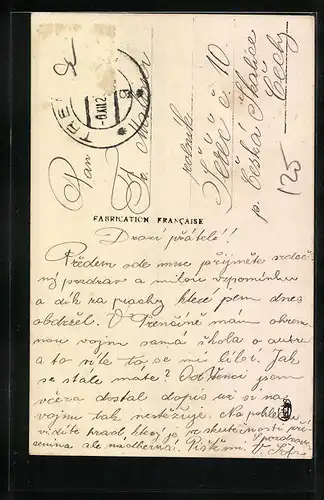 TREN
-6.XII.2
Pan
Fr.
rolník
č 10
p. Česká Skalice
Čechy
125
FABRICATION FRANÇAISE
Drazí přátelé!!
Předem ode mne přijměte srdeč-
ný pozdrav a milou vzpomínku
a dík za prachy které jsem dnes
obdržel. V Trenčíně mám ohrom-
nou vojnu samá škola o autu
a to víte to se mi líbí. Jak
se stále máte? Od Venci jsem
včera dostal dopis už si na
vojnu tak nestěžuje. Na pohledu
vidíte hrad, který je ve skutečnosti zří-
cenina ale nádherná. Pište mi. V.
S pozdravem